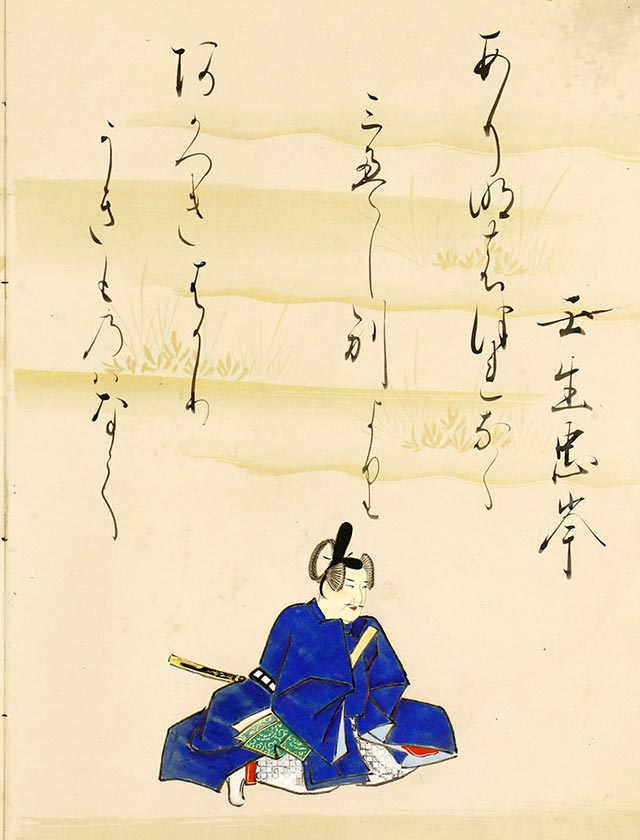 壬生忠岑
あり明のつれなく
三えし別より
あかつきはかり
うきものハなし